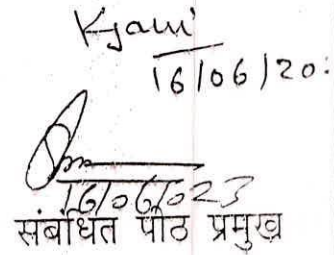 16/06/20:
16/06/2023
संबंधित पीठ प्रमुख